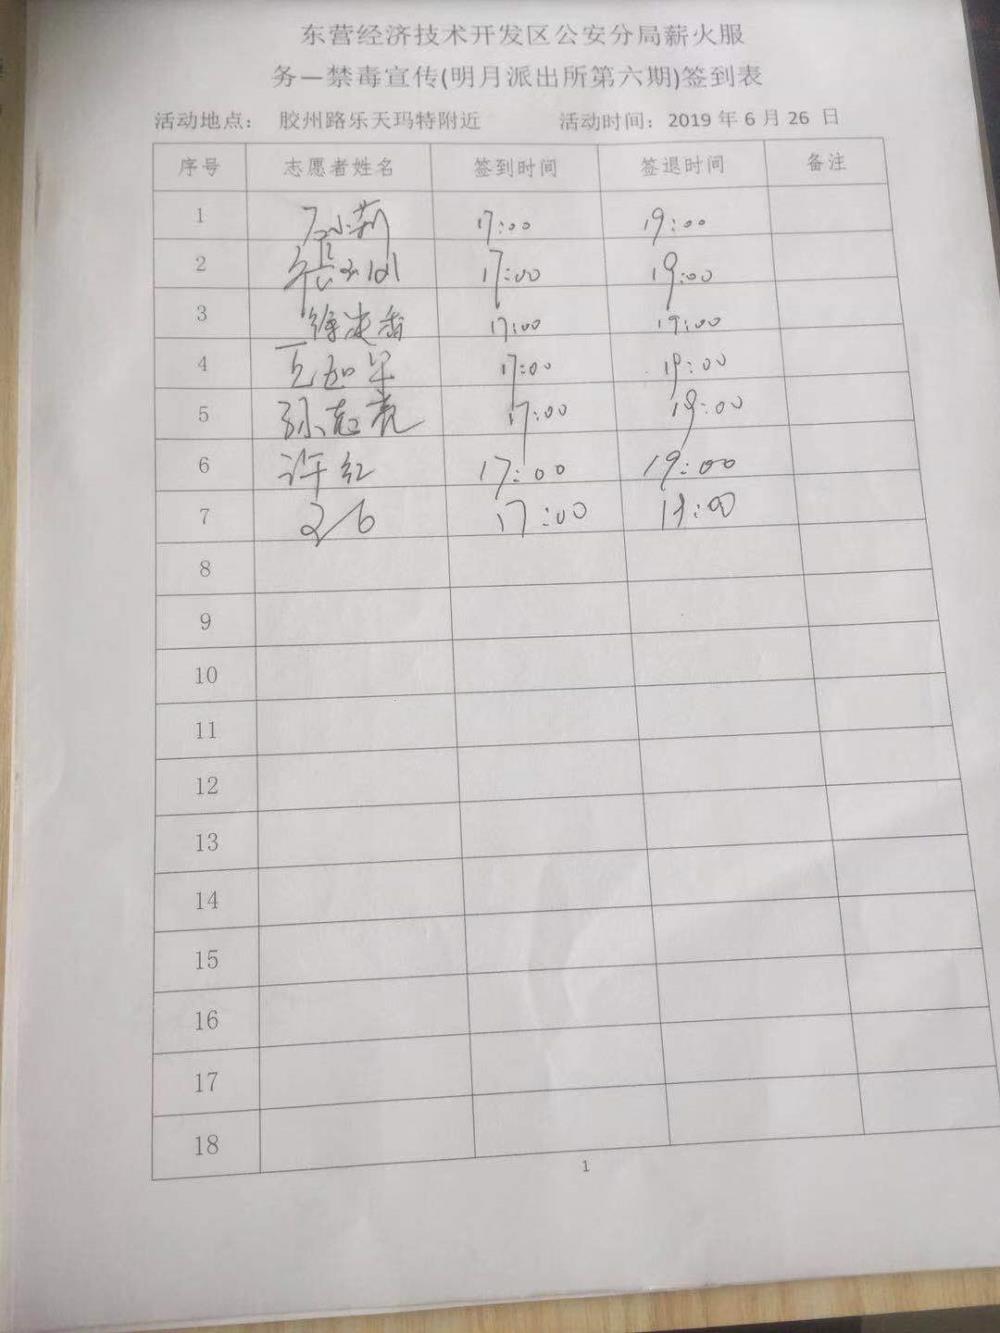 东营经济技术开发区公安分局薪火服
务—禁毒宣传(明月派出所第六期)签到表
活动地点： 胶州路乐天玛特附近 活动时间：2019 年 6 月 26 日
序号 志愿者姓名 签到时间 签退时间 备注
1 17:00 19:00
2 17:00 19:00
3 17:00 19:00
4 17:00 19:00
5 孙志亮 17:00 19:00
6 许红 17:00 19:00
7 17:00 19:00
8
9
10
11
12
13
14
15
16
17
18
1